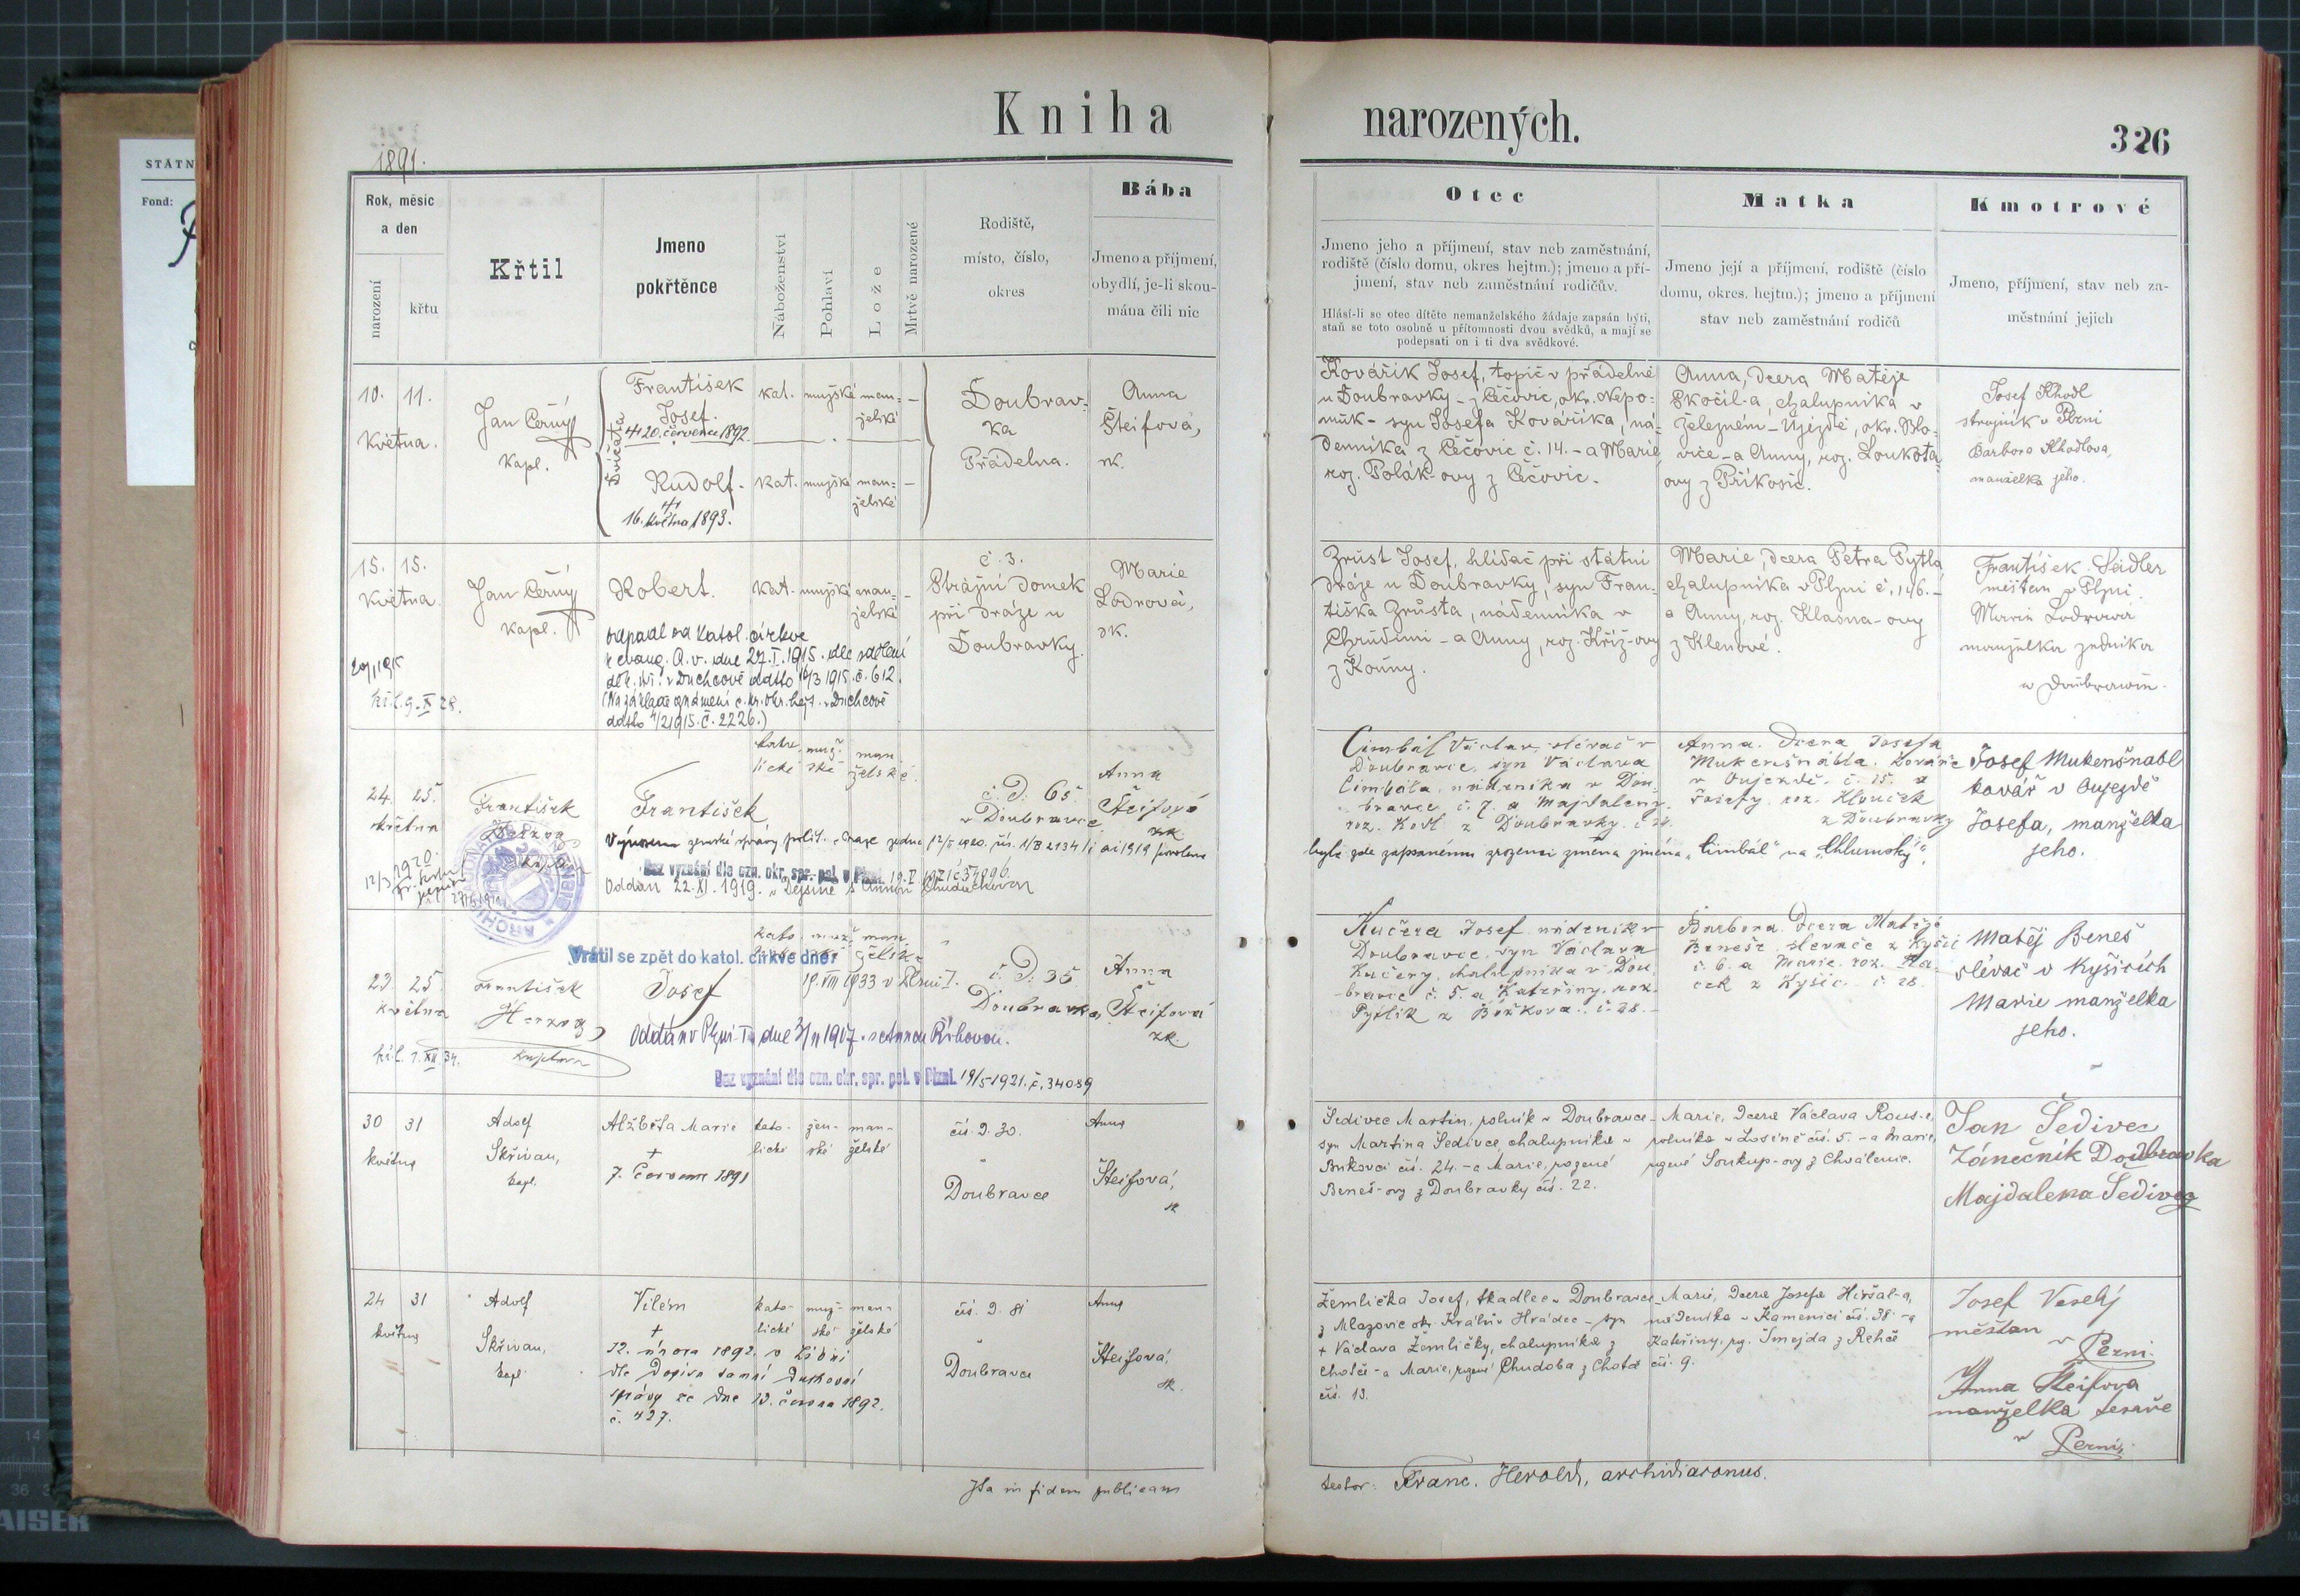 STÁTN
Fond:
Kniha narozených.
326
1891.
Rok, měsíc
a den
narození
křtu
Křtil
Jmeno
pokřtěnce
Náboženství
Pohlaví
Lože
Mrtvě narozené
Rodiště,
místo, číslo,
okres
Bába
Jmeno a příjmení,
obydlí, je-li skou-
mána čili nic
Otec
Jmeno jeho a příjmení, stav neb zaměstnání,
rodiště (číslo domu, okres hejtm.); jmeno a pří-
jmení, stav neb zaměstnání rodičův.
Hlásí-li se otec dítěte nemanželského žádaje zapsán býti,
staň se toto osobně u přítomnosti dvou svědků, a mají se
podepsati on i ti dva svědkové.
Matka
Jmeno její a příjmení, rodiště (číslo
domu, okres. hejtm.); jmeno a příjmení
stav neb zaměstnání rodičů
Kmotrové
Jmeno, příjmení, stav neb za-
městnání jejich
10. 11.
května.
Jan Černý
kapl.
Dvojčata
František
Josef.
20. července 1892.
Rudolf.
16. května 1893.
kat. mužské man-
želské
kat. mužské man-
želské
Doubrav-
ka
Přádelna.
Anna
Šteifová,
zk.
Kovářík Josef, topič v přádelně
u Doubravky - z Čečovic, okr. Nepo-
muk - syn Josefa Kováříka, ná-
denníka z Čečovic č. 14. - a Marie
roz. Polák-ovy z Čečovic.
Anna, dcera Matěje
Skočil-a, chalupníka v
Železném-Újezdě, okr. Blo-
vice - a Anny, roz. Loukota-
ovy z Příkosic.
Josef Khodl
strojník v Plzni
Barbora Khodlova,
manželka jeho.
15. 15.
května.
Jan Černý
kapl.
Robert.
kat. mužské man-
želské
odpadl od katol. církve
k evang. A. v. dne 27. I. 1915. dle sdělení
děk. úř. v Duchcově ddto 16/3 1915. č. 612.
(Na základě oznámení c. kr. okr. hejt. v Duchcově
ddto 4/2 1915. č. 2226.)
kř. l. 9. X 28.
č. 3.
Strážní domek
při dráze u
Doubravky.
Marie
Lodrová,
zk.
Zrůst Josef, hlídač při státní
dráze u Doubravky, syn Fran-
tiška Zrůsta, nádenníka v
Chrudimi - a Anny, roz. Kříž-ovy
z Kouny.
Marie, dcera Petra Pytla
chalupníka v Plzni č. 146. -
a Anny, roz. Klasna-ovy
z Klenové.
František Seidler
měšťan v Plzni.
Marie Lodrová
manželka zedníka
v Doubravce.
24. 25.
května
František
Herzog
kaplan
František
kato- muž- man-
lické ské želské
č. d. 65
v Doubravce
Anna
Šteifová
zk.
Výnosem zemské správy polit. v Praze ze dne 12/2 1920. čís. 1/B 2134/1 ai 1919 povolena
byla zde zapsanému zrozenci změna jména „Cimbál“ na „Chlumský“.
Bez vyznání dle ozn. okr. spr. pol. v Plzni. 19. V. 1921 č 34096.
Oddán 22. XI. 1919. v Dejšině s Annou Chudáčkovou
Cimbál Václav, slévač v
Doubravce, syn Václava
Cimbála, nádeníka v Dou-
bravce č. 7. a Majdaleny
roz. Kodl z Doubravky č. 24.
Anna. Dcera Josefa
Mukenšnábla, kováře
v Oujezdě č. 15. a
Josefy roz. Klouček
z Doubravky
Josef Mukenšnabl
kovář v Oujezdě
Josefa, manželka
jeho.
23. 25.
května
František
Herzog
kaplan
kř. l. 7. XII 34.
Vrátil se zpět do katol. církve dne:
19. VIII 1933 v Plzni I.
Josef
kato- muž- man-
želské
Oddán v Plzni I. dne 3/II 1917. s Annou Říhovou.
Bez vyznání dle ozn. okr. spr. pol. v Plzni. 19/5 1921. č. 34089
č. d. 35
Doubravka
Anna
Šteifová
zk.
Kučera Josef nádeník v
Doubravce, syn Václava
Kučery, chalupníka v Dou-
bravce č. 5. a Kateřiny, roz.
Pytlík z Božkova č. 28. -
Barbora Dcera Matěje
Beneše slevače z Kyšic
č. 6. a Marie roz.
z Kyšic č. 28.
Matěj Beneš
slévač v Kyšicích
Marie manželka
jeho.
30 31
května
Adolf
Skřivan,
kapl.
Alžběta Marie
†
7. července 1891
kato- žen- man-
lické ské želské
čís. d. 30.
Doubravce
Anna
Šteifová,
zk
Šedivec Martin, rolník v Doubravce -
syn Martina Šedivce, chalupníka v
Bukovci čís. 24. - a Marie, rozené
Beneš-ovy z Doubravky čís. 22.
Marie, dcera Václava Rous-a,
rolníka v Losině čís. 5. - a Marie,
rozené Soukup-ovy z Chválenic.
Jan Šedivec
Zámečník Doubravka
Majdalena Šedivec
24 31
května
Adolf
Skřivan,
kapl.
Vilém
†
12. února 1892. v Libni
dle dopisu tamní duchovní
správy ze dne 13. června 1892.
č. 427.
kato- muž- man-
lické ské želské
čís. d. 81
Doubravce
Anna
Šteifová,
zk.
Žemlička Josef, tkadlec v Doubravce -
z Mlazovic okr. Králův Hrádec - syn
† Václava Žemličky, chalupníka z
Choteč - a Marie, rozené Chudoba z Choteč
čís. 13.
Marie, dcera Josefa Hiršal-a,
nádeníka v Kamenici čís. 38. - a
Kateřiny, roz. Šmejda z Řehče
čís. 9.
Josef Veselý
měšťan
v Perni.
Anna Šteifova
manželka tesaře
v Perni.
Ita in fidem publicam
testor: Franc. Herold, archidiaconus.